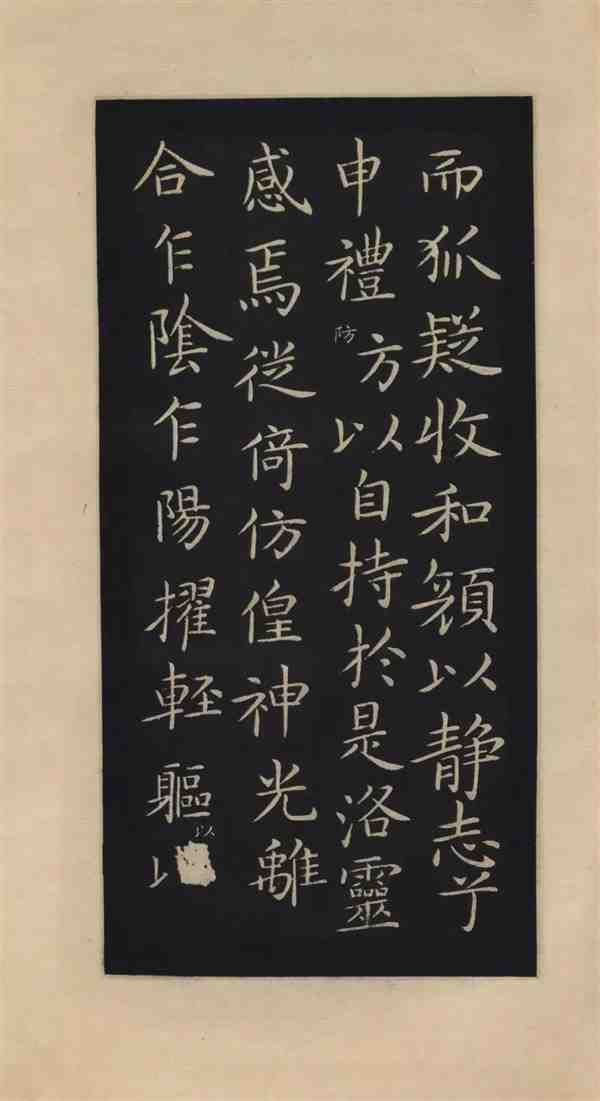 而狐疑收和顏以静志兮
申禮方以自持於是洛靈
防
感焉徙倚仿偟神光離
合乍陰乍陽擢輕軀
以